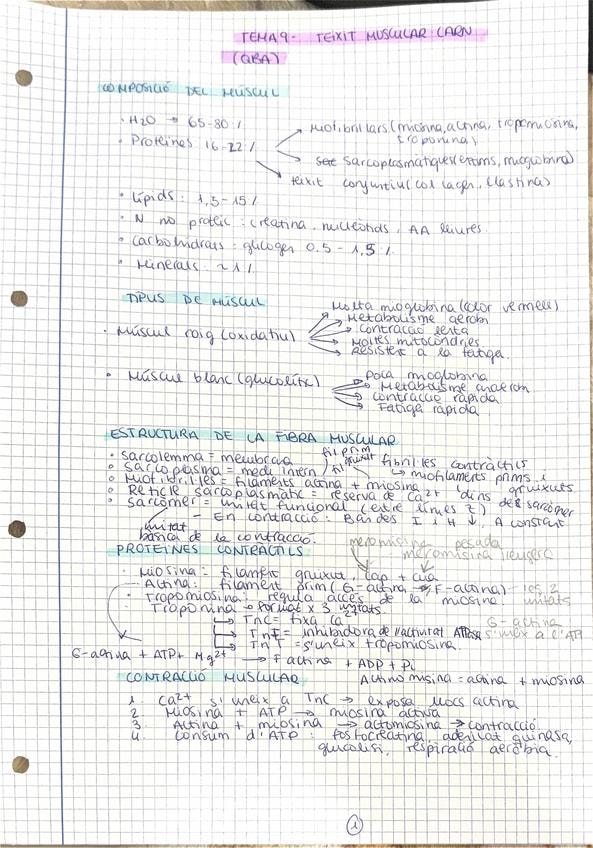 TEMA 9 - TEIXIT MUSCULAR: CARN
(QBA)
COMPOSICIÓ DEL MÚSCUL
· H2O → 65-80 %
· Proteïnes 16-22 % → Miofibrillars (miosina, actina, tropomiosina, troponina)
→ Sarcoplasmàtiques (enzims, mioglobina)
→ teixit conjuntiu (col·lagen, elastina)
· Lípids: 1,5-15 %
· N no proteic: creatina, nucleòtids, AA lliures.
· Carbohidrats: glicogen 0.5 - 1,5 %.
· Minerals: ~1 %.
TIPUS DE MÚSCUL
· Múscul roig (oxidatiu)
→ Molta mioglobina (color vermell)
→ Metabolisme aerobi
→ Contracció lenta
→ Moltes mitocondries
→ Resistent a la fatiga.
· Múscul blanc (glucolític)
→ Poca mioglobina
→ Metabolisme anaerobi
→ Contracció ràpida
→ Fatiga ràpida
ESTRUCTURA DE LA FIBRA MUSCULAR
· Sarcolemma = membrana
· Sarcoplasma = medi intern
fil prim
fil gruixut
fibril·les contràctils
↳ miofilaments prims i gruixuts
dins del sarcòmer
· Miofibril·les = filaments actina + miosina
· Reticle sarcoplasmàtic = reserva de Ca2+
· Sarcòmer = unitat funcional (entre línies Z)
unitat bàsica de la contracció.
→ En contracció: Bandes I i H ↓, A constant
PROTEÏNES CONTRÀCTILS
meromiosina pesada
meromiosina lleugera
· Miosina: filament gruixut, cap + cua
· Actina: filament prim (G-actina → F-actina)
· Tropomiosina: regula accés de la miosina
· Troponina → format x 3 unitats
→ TnC = fixa Ca2+
→ TnI = inhibidora de l'activitat ATPasa
→ TnT = s'uneix tropomiosina.
G-actina s'uneix a l'ATP
G-actina + ATP + Mg2+ → F actina + ADP + Pi
Actinomiosina = actina + miosina
CONTRACCIÓ MUSCULAR
1. Ca2+ s'uneix a TnC → exposa llocs actina
2. Miosina + ATP → miosina activa
3. Actina + miosina → actomiosina → contracció.
4. Consum d'ATP: fosfocreatina, adenilat quinasa,
glucolisi, respiració aeròbia.
1